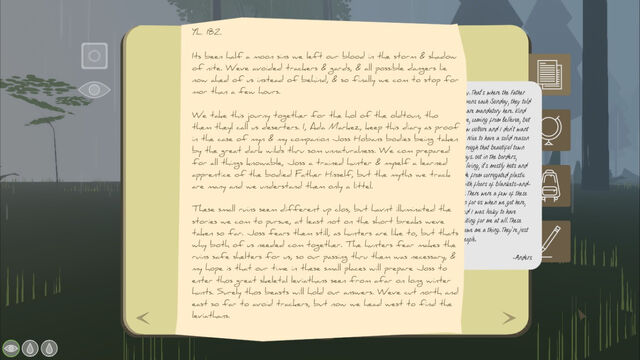 YL 182
Its been half a moon sins we left our blood in the storm & shadow
of nite. Weve avoided trackers & gards, & all possible dangers lie
now ahed of us instead of behind, & so finally we com to stop for
mor than a few hours.
We take this journy together for the hol of the oldtown, tho
them theyl call us deserters. I, Ada Markez, keep this diary as proof
in the case of mys & my companion Joss Hobans bodies being taken
by the great dark wilds thru som unnaturalness. We com prepared
for all things knowable, Joss a trained hunter & myself a learned
apprentice of the bodied Father Hisself, but the myths we track
are many and we understand them only a littel.
These small ruins seem different up clos, but havnt illuminated the
stories we com to pursue, at least not on the short breaks weve
taken so far. Joss fears them still, as hunters are like to, but thats
why both of us needed com together. The hunters fear makes the
ruins safe shelters for us, so our passing thru them was necessary, &
my hope is that our time in these small places will prepare Joss to
enter thos great skeletal leviathans seen from afar on long winter
hunts. Surely thos beasts will hold our answers. Weve cut north and
east so far to avoid trackers, but now we head west to find the
leviathans.
y. That's where the Father
mans each Sunday, they told
are mandatory here. Kind
, coming from believer, but
culture and I don't want
this to have a solid reason
rough that beautiful town
ays out in the borders,
living, it's mostly huts and
from corrugated plastic
with floors of blankets-and-
There were a few of these
for us when we got here,
d I was lucky to have
iting for me at all. These
me a thing. They're just
people.
-Anders